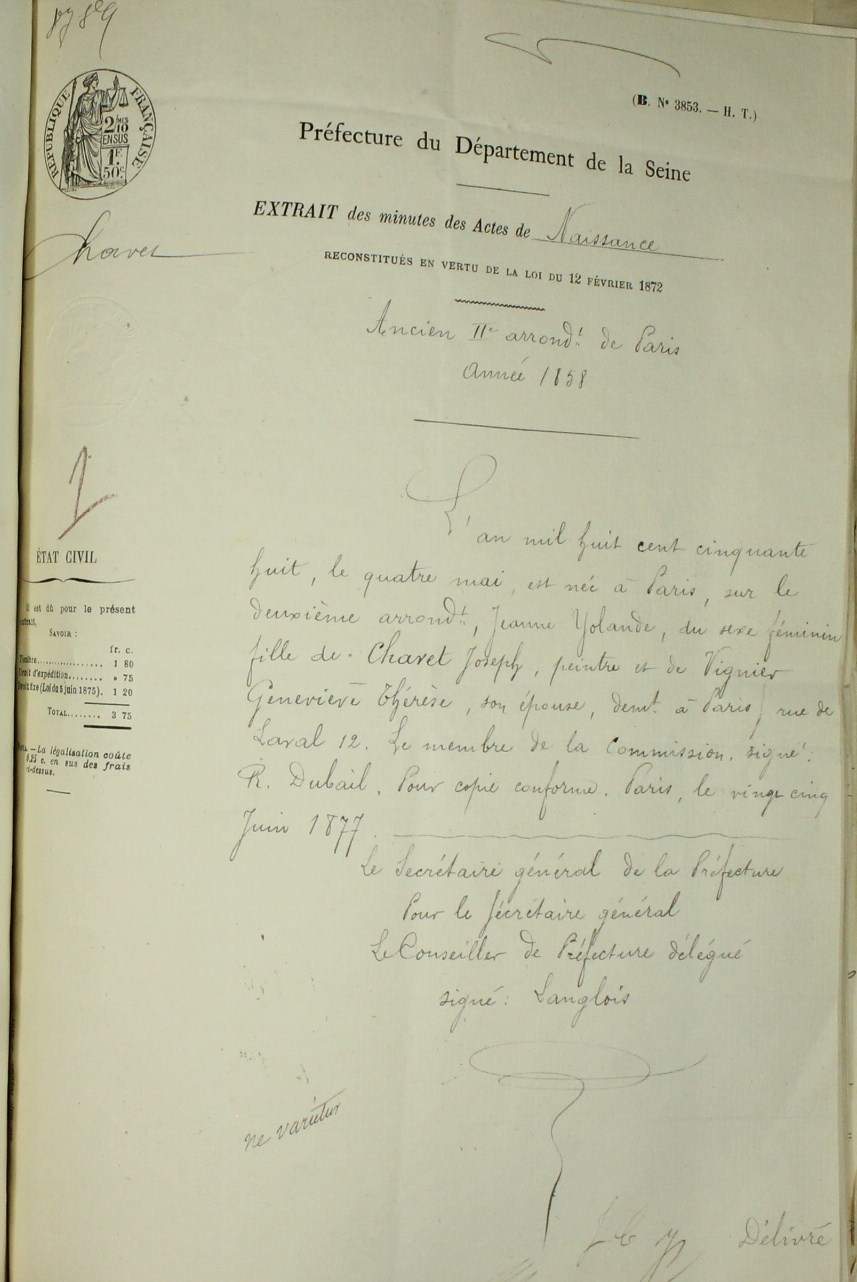 8789
(B. Nº 3853. — H. T.)
RÉPUBLIQUE FRANÇAISE
2/10
EN SUS
1F
50C
Préfecture du Département de la Seine
EXTRAIT des minutes des Actes de Naissance
RECONSTITUÉS EN VERTU DE LA LOI DU 12 FÉVRIER 1872
Charet
Ancien IIe arrondt de Paris
Année 1858
L'an mil huit cent cinquante
huit, le quatre mai, est née à Paris, sur le
deuxième arrondt, Jeanne Yolande, du sexe féminin
fille de Charet Joseph, peintre et de Vignier
Geneviève Thérèse, son épouse, demt à Paris, rue de
Laval 12. Le membre de la Commission. signé:
R. Dubail. Pour copie conforme. Paris, le vingt cinq
Juin 1877.
Le Secrétaire général de la Préfecture
Pour le Secrétaire général
Le Conseiller de Préfecture délégué
signé: Langlois
ÉTAT CIVIL
Il est dû pour le présent
extrait,
SAVOIR :
fr. c.
Timbre................ 1 80
Droit d'expédition....... » 75
Droit fixe (Loi du 5 juin 1875). 1 20
TOTAL....... 3 75
NOTA. — La légalisation coûte
0,25 c. en sus des frais
ci-dessus.
ne varietur
Délivré